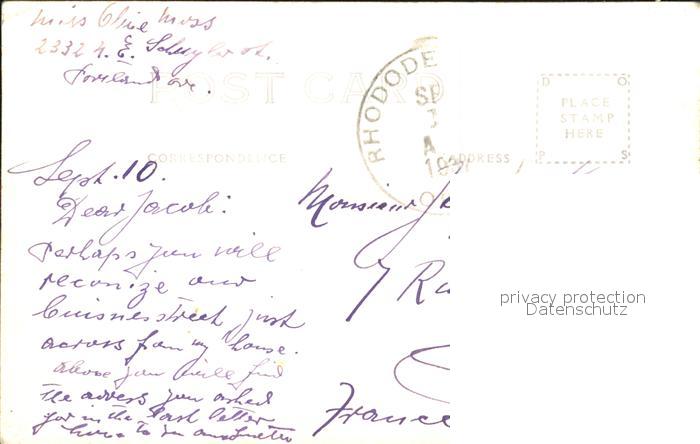 Miss Olive Moss
2332 N.E. Schuyler St.
Portland Ore.
POST CARD
RHODODE
SE
A
193
CORRESPONDENCE
ADDRESS
D O
PLACE
STAMP
HERE
P S
Sept. 10.
Dear Jacob:
Perhaps you will
reconize our
buisnes street just
across from my house.
above you will find
the adress you asked
for in the last letter
to
Monsieur Ja
7 Ru
France
privacy protection
Datenschutz